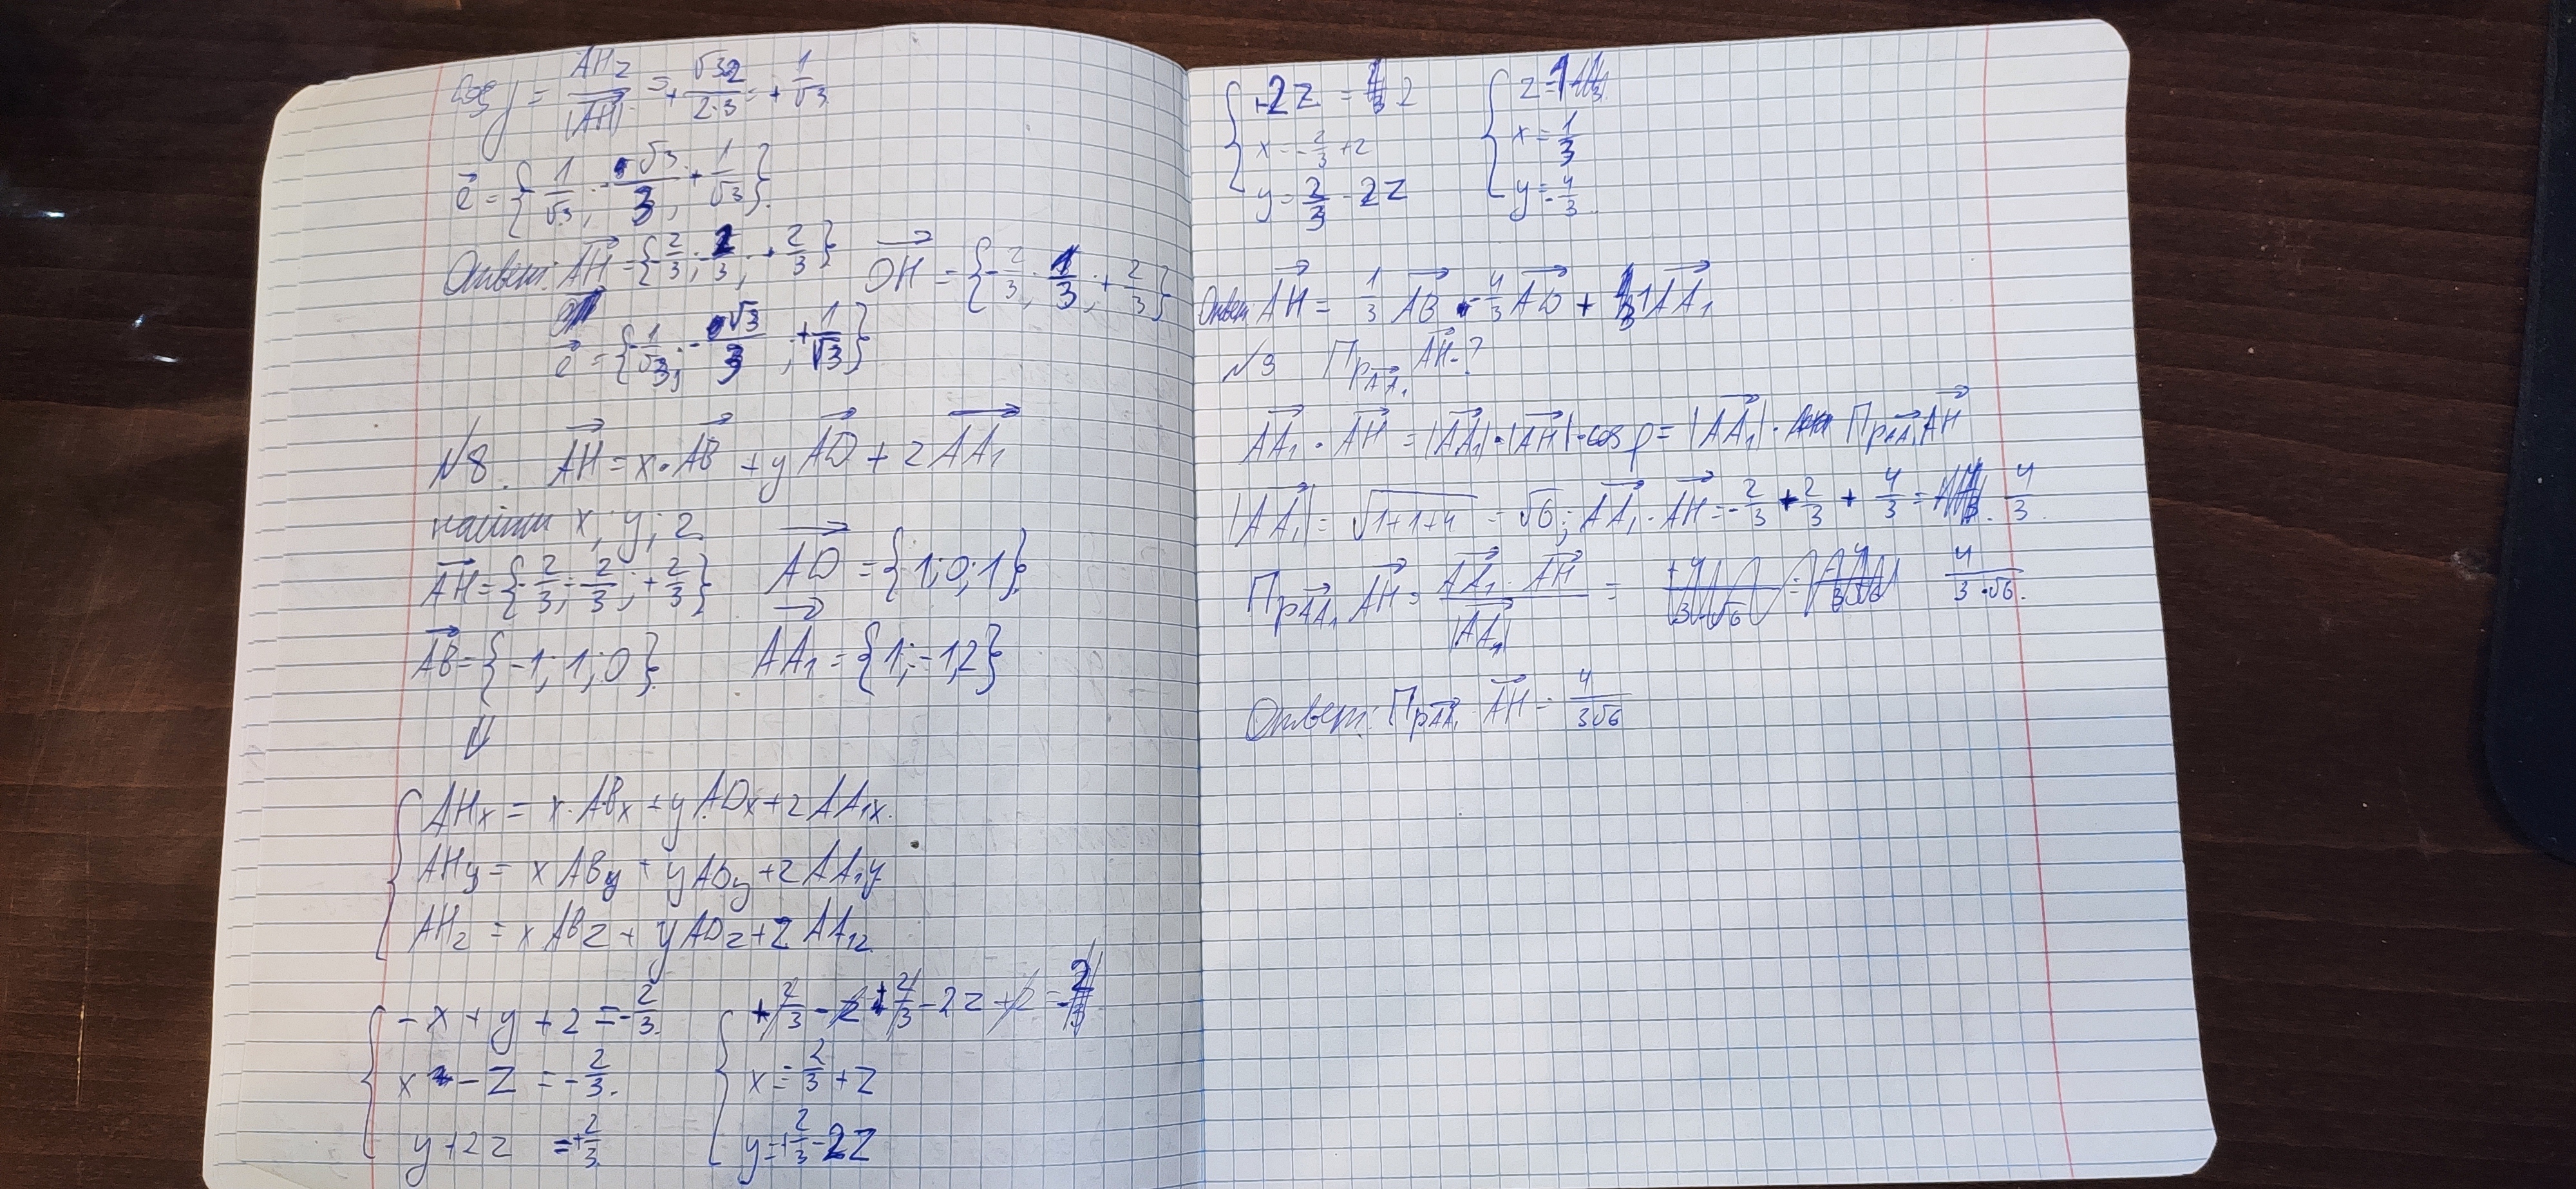 cos γ = AHz / |AH| = + √3·2 / 2·3 = + 1/√3
e⃗ = { -1/√3 ; -√3/3 ; + 1/√3 }
Ответ: AH⃗ = { -2/3 ; -2/3 ; + 2/3 } OH⃗ = { -2/3 ; 1/3 ; + 2/3 }
e⃗ = { -1/√3 ; -√3/3 ; + 1/√3 }
№8. AH⃗ = x · AB⃗ + y AD⃗ + z AA₁⃗
найти x; y; z.
AH⃗ = { -2/3 ; -2/3 ; + 2/3 } AD⃗ = { 1; 0; 1 }
AB⃗ = { -1; 1; 0 } AA₁⃗ = { 1; -1; 2 }
⇓
{ AHx = x · ABx + y ADx + z AA₁x.
AHy = x ABy + y ADy + z AA₁y
AHz = x ABz + y ADz + z AA₁z
{ -x + y + z = -2/3. { + 2/3 - z + 2/3 - 2z + z = -2/3
x - z = -2/3. x = 2/3 + z
y + 2z = + 2/3. y = + 2/3 - 2z
{ +2z = 2 { z = 1
x = -2/3 + z x = 1/3
y = 2/3 - 2z y = -4/3.
Ответ AH⃗ = 1/3 AB⃗ - 4/3 AD⃗ + 1 AA₁⃗
№9 Пр AA₁⃗ AH⃗ - ?
AA₁⃗ · AH⃗ = |AA₁⃗| · |AH⃗| · cos φ = |AA₁⃗| · Пр AA₁⃗ AH⃗
|AA₁⃗| = √1+1+4 = √6; AA₁⃗ · AH⃗ = -2/3 + 2/3 + 4/3 = 4/3.
Пр AA₁⃗ AH⃗ = AA₁⃗ · AH⃗ / |AA₁⃗| = 4 / 3·√6.
Ответ: Пр AA₁⃗ AH⃗ = 4 / 3√6